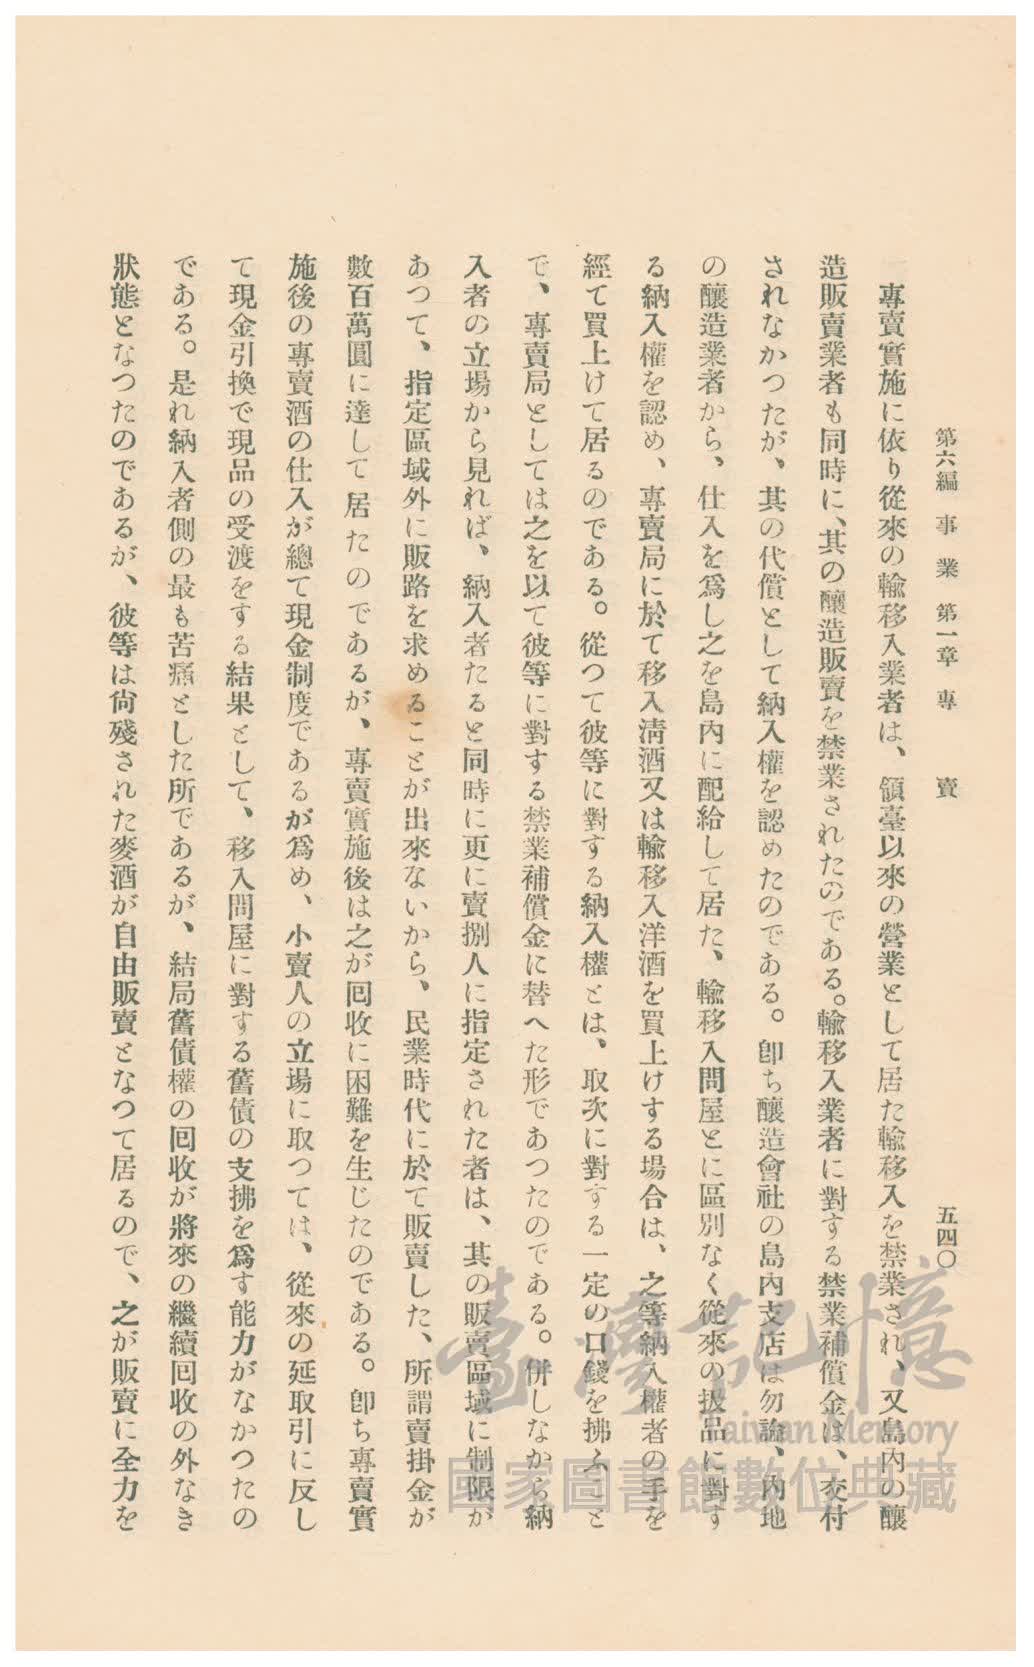 第六編 事業 第一章 專賣 五四〇
專賣實施に依り從來の輸移入業者は、領臺以來の營業として居た輸移入を禁業され、又島內の釀
造販賣業者も同時に、其の釀造販賣を禁業されたのである。輸移入業者に對する禁業補償金は、交付
されなかつたが、其の代償として納入權を認めたのである。卽ち釀造會社の島內支店は勿論、內地
の釀造業者から、仕入を爲し之を島內に配給して居た、輸移入問屋とに區別なく從來の扱品に對す
る納入權を認め、專賣局に於て移入淸酒又は輸移入洋酒を買上けする場合は、之等納入權者の手を
經て買上けて居るのである。從つて彼等に對する納入權とは、取次に對する一定の口錢を拂ふこと
で、專賣局としては之を以て彼等に對する禁業補償金に替へた形であつたのである。併しなから納
入者の立場から見れば、納入者たると同時に更に賣捌人に指定された者は、其の販賣區域に制限が
あつて、指定區域外に販路を求めることが出來ないから、民業時代に於て販賣した、所謂賣掛金が
數百萬圓に達して居たのであるが、專賣實施後は之が囘收に困難を生じたのである。卽ち專賣實
施後の專賣酒の仕入が總て現金制度であるが爲め、小賣人の立場に取つては、從來の延取引に反し
て現金引換で現品の受渡をする結果として、移入問屋に對する舊債の支拂を爲す能力がなかつたの
である。是れ納入者側の最も苦痛とした所であるが、結局舊債權の囘收が將來の繼續囘收の外なき
狀態となつたのであるが、彼等は尙殘された麥酒が自由販賣となつて居るので、之が販賣に全力を
臺灣記憶
Taiwan Memory
國家圖書館數位典藏